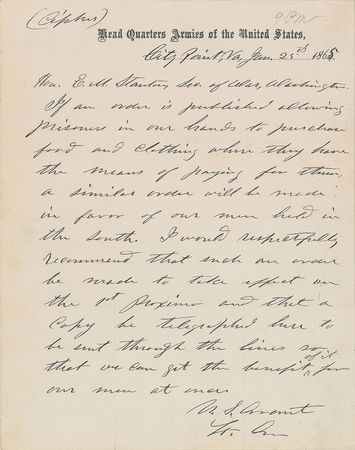 (Cipher) 9 P.M.
Head Quarters Armies of the United States,
City Point, Va, Jan. 25th 1865.
Hon. E. M. Stanton, Sec. of War, Washington.
If an order is published allowing
prisoners in our hands to purchase
food and clothing where they have
the means of paying for them,
a similar order will be made
in favor of our men held in
the south. I would respectfully
recommend that such an order
be made to take effect on
the 1st Proximo and that a
copy be telegraphed here to
be sent through the lines so
that we can get the benefit of it for
our men at once.
U. S. Grant
Lt. Gn